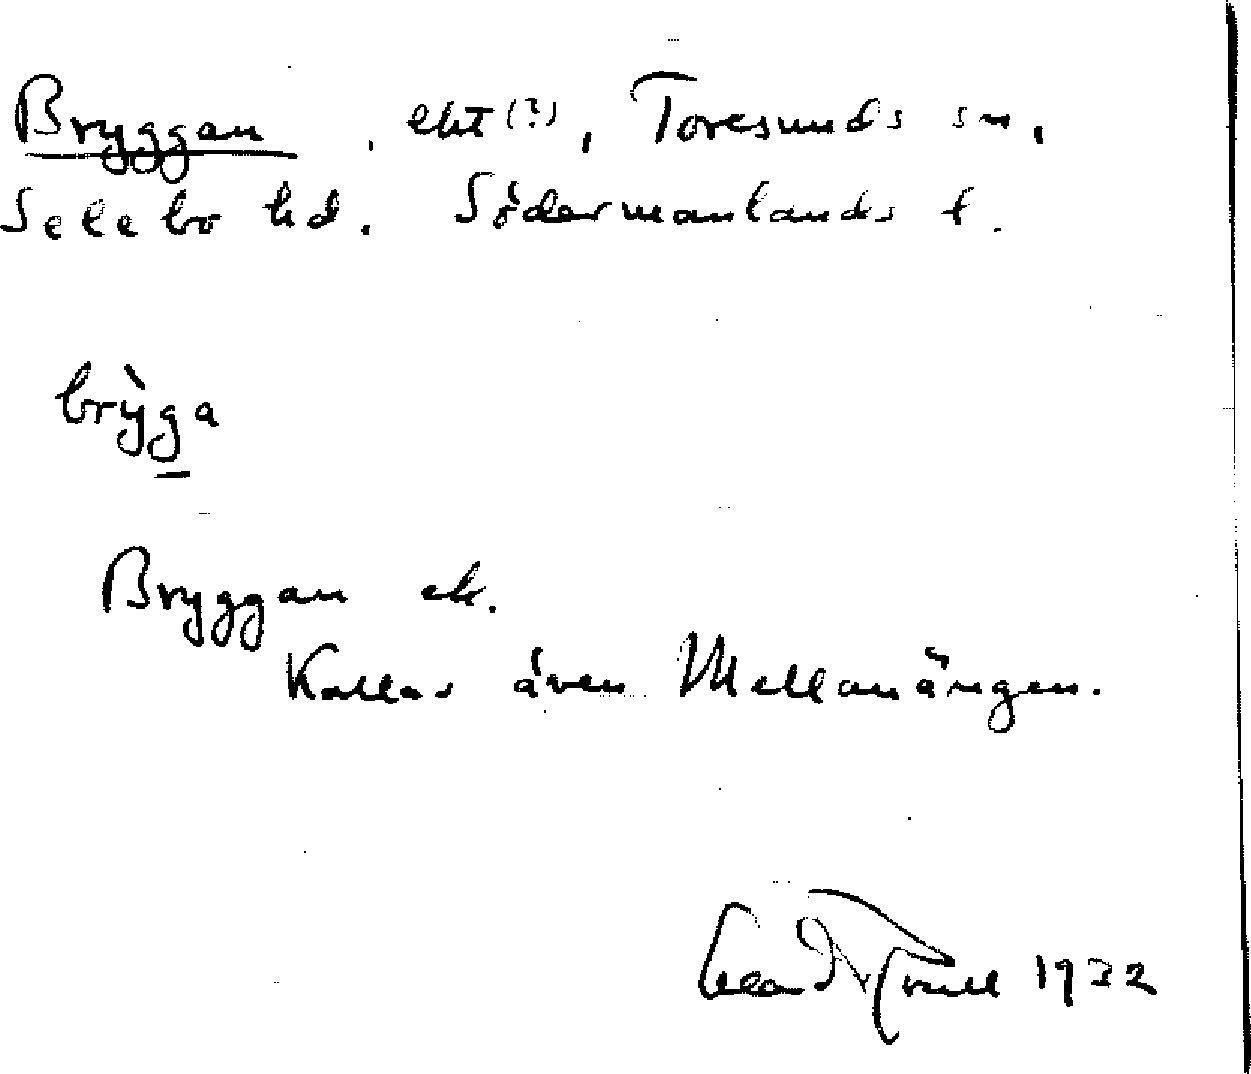 Bryggan, ekt(?), Toresunds sn,
Selebo hd. Södermanlands l.
brỳga
Bryggan ek.
Kallas även Mellanängen.
1932